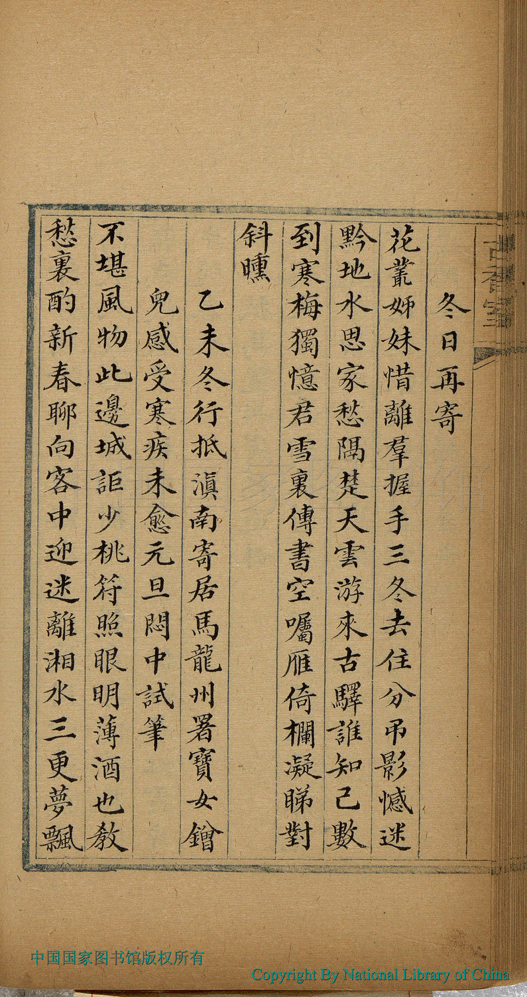 冬日再寄
花叢姊妹惜離羣握手三冬去住分吊影憾迷
黔地水思家愁隔楚天雲游來古驛誰知己數
到寒梅獨憶君雪裏傳書空囑雁倚欄凝睇對
斜曛
乙未冬行抵滇南寄居馬龍州署寶女鐺
兒感受寒疾未愈元旦悶中試筆
不堪風物此邊城詎少桃符照眼明薄酒也教
愁裏酌新春聊向客中迎迷離湘水三更夢飄
中国国家图书馆版权所有
Copyright By National Library of China